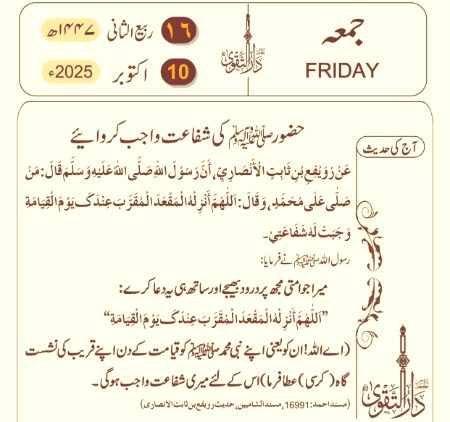 جمعہ
FRIDAY
دارالتقویٰ
۱۶ ربیع الثانی ۱۴۴۷ھ
10 اکتوبر 2025ء
آج کی حدیث
حضور ﷺ کی شفاعت واجب کروائیے
عَنْ رُوَيْفِعِ بْنِ ثَابِتِ الْأَنْصَارِيِّ، أَنَّ رَسُوْلَ اللهِ صَلَّى اللهُ عَلَيْهِ وَسَلَّمَ قَالَ: مَنْ
صَلّٰى عَلٰى مُحَمَّدٍ، وَقَالَ: اَللّٰهُمَّ أَنْزِلْهُ الْمَقْعَدَ الْمُقَرَّبَ عِنْدَكَ يَوْمَ الْقِيَامَةِ
وَجَبَتْ لَهُ شَفَاعَتِيْ۔
رسول اللہ ﷺ نے فرمایا:
میرا جو امتی مجھ پر درود بھیجے اور ساتھ ہی یہ دعا کرے:
”اَللّٰهُمَّ أَنْزِلْهُ الْمَقْعَدَ الْمُقَرَّبَ عِنْدَكَ يَوْمَ الْقِيَامَةِ“
(اے اللہ! ان کو یعنی اپنے نبی محمد ﷺ کو قیامت کے دن اپنے قریب کی نشست
گاہ (کرسی) عطا فرما) اس کے لئے میری شفاعت واجب ہوگی۔
(مسند احمد: 16991، مسند الشامیین، حدیث رویفع بن ثابت الانصاری)
دارالتقویٰ